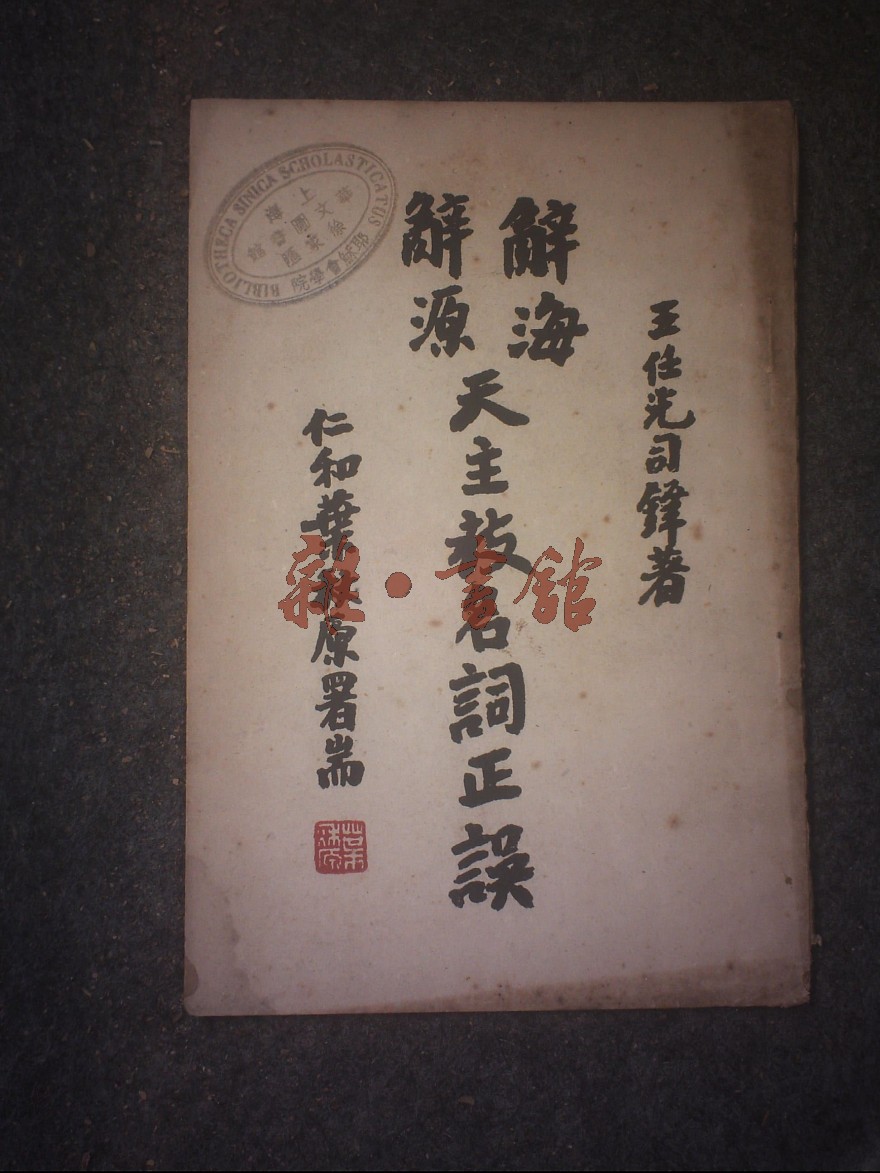 王任光司鐸著
辭海
辭源
天主教名詞正誤
仁和葉秋原署耑
BIBLIOTHECA SINICA SCHOLASTICATUS
上海
徐家匯
華文圖書館
耶穌會學院
雜·書館